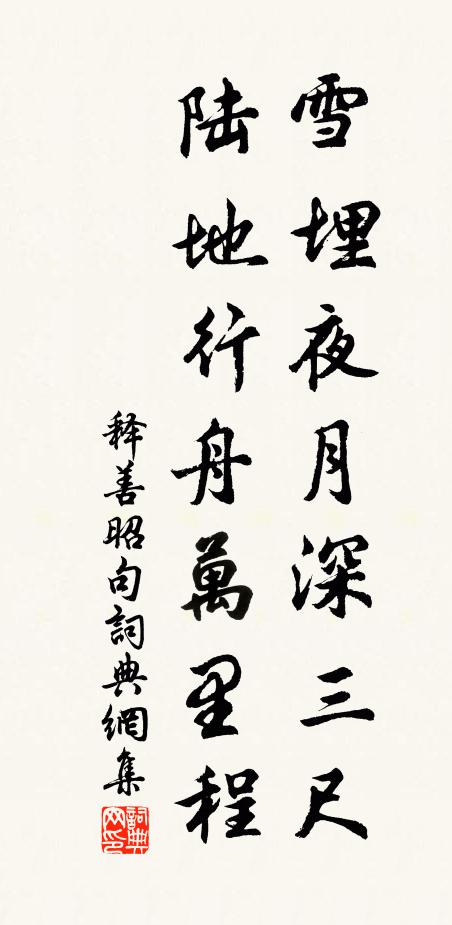 雪埋夜月深三尺
陆地行舟萬里程
释善昭句詞典網集
詞典网印